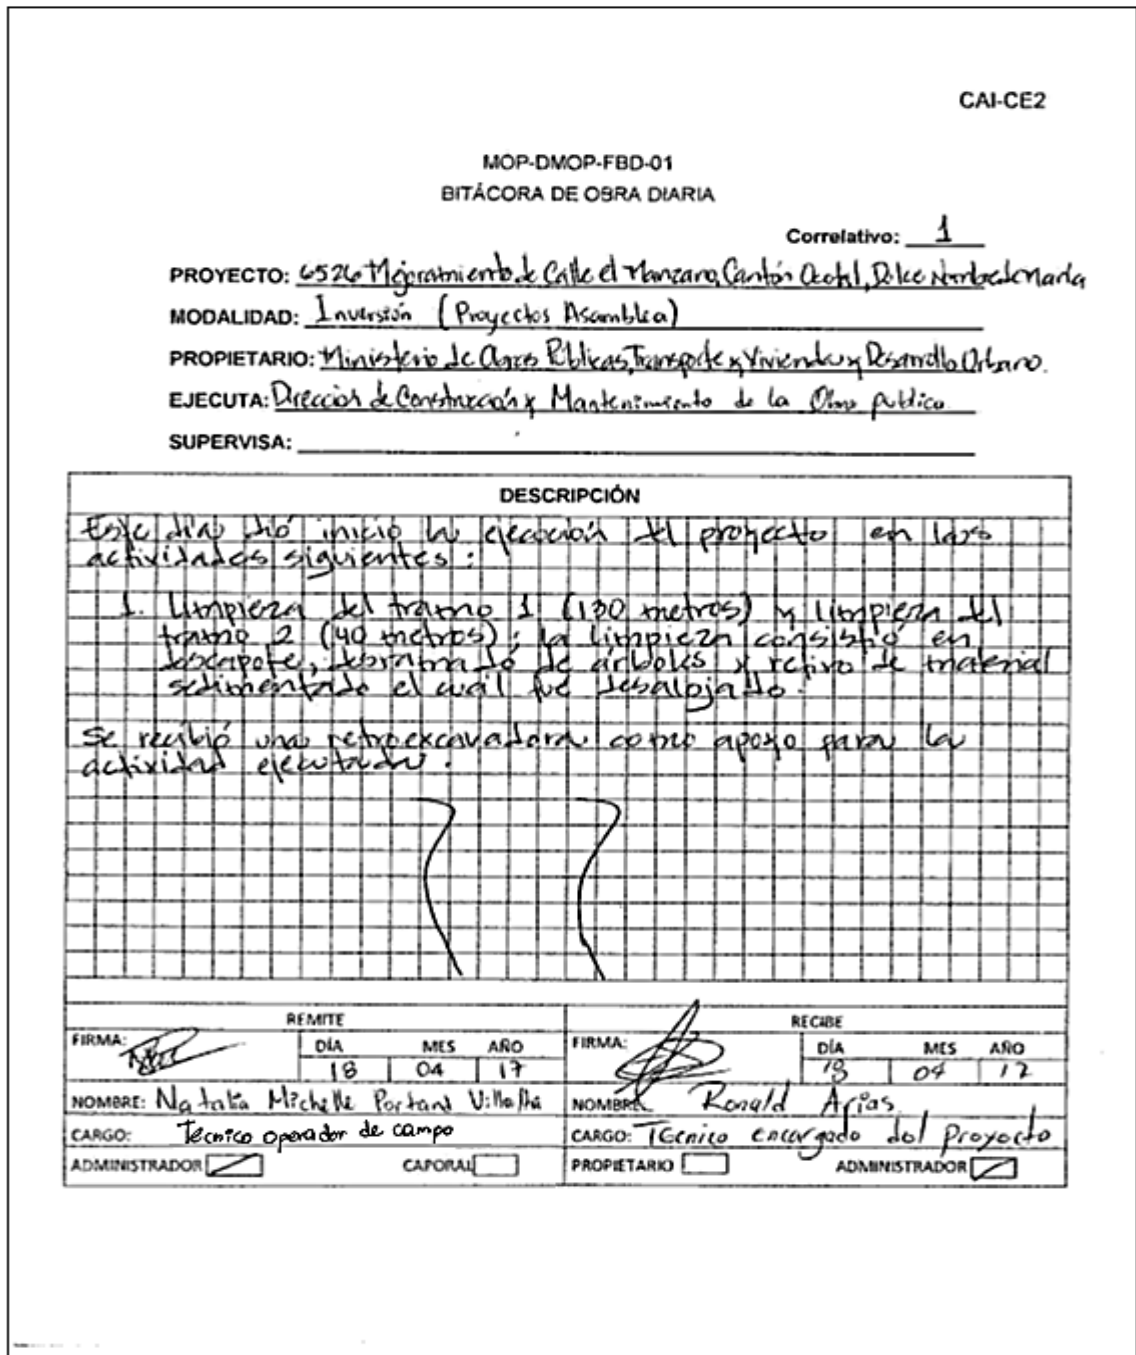 CAI-CE2
MOP-DMOP-FBD-01
BITÁCORA DE OBRA DIARIA
Correlativo: 1
PROYECTO: 6526 Mejoramiento de Calle el Manzano, Cantón Ocotal, Dulce Nombre de María
MODALIDAD: Inversión (Proyectos Asamblea)
PROPIETARIO: Ministerio de Obras Públicas, Transporte y Vivienda y Desarrollo Urbano.
EJECUTA: Dirección de Construcción y Mantenimiento de la Obra publica
SUPERVISA:
DESCRIPCIÓN
Este día dió inicio la ejecución del proyecto en las
actividades siguientes:
1. Limpieza del tramo 1 (130 metros) y limpieza del
tramo 2 (40 metros); la limpieza consistió en
descapote, desramado de árboles y retiro de material
sedimentado el cuál fue desalojado.
Se recibió una retroexcavadora como apoyo para la
actividad ejecutada.
REMITE RECIBE
FIRMA: DÍA MES AÑO FIRMA: DÍA MES AÑO
18 04 17 18 04 17
NOMBRE: Natalia Michelle Portand NOMBRE: Ronald Arias
CARGO: Técnico operador de campo CARGO: Técnico encargado del proyecto
ADMINISTRADOR CAPORAL PROPIETARIO ADMINISTRADOR